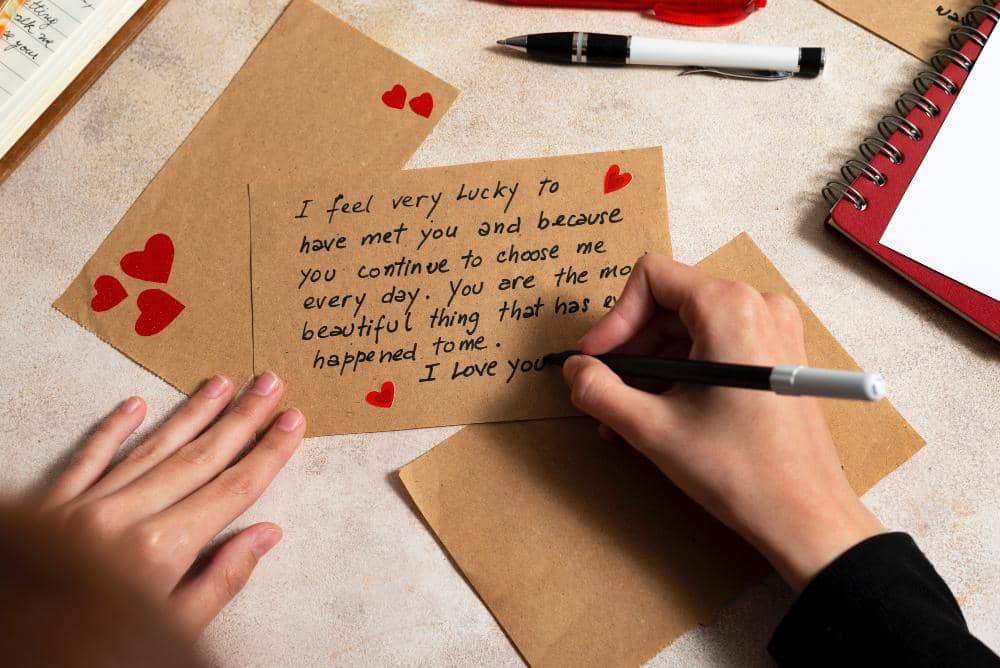 etting
alk me
e your
I feel very Lucky to
have met you and because
you continue to choose me
every day. You are the mo
beautiful thing that has ev
happened to me.
I Love you